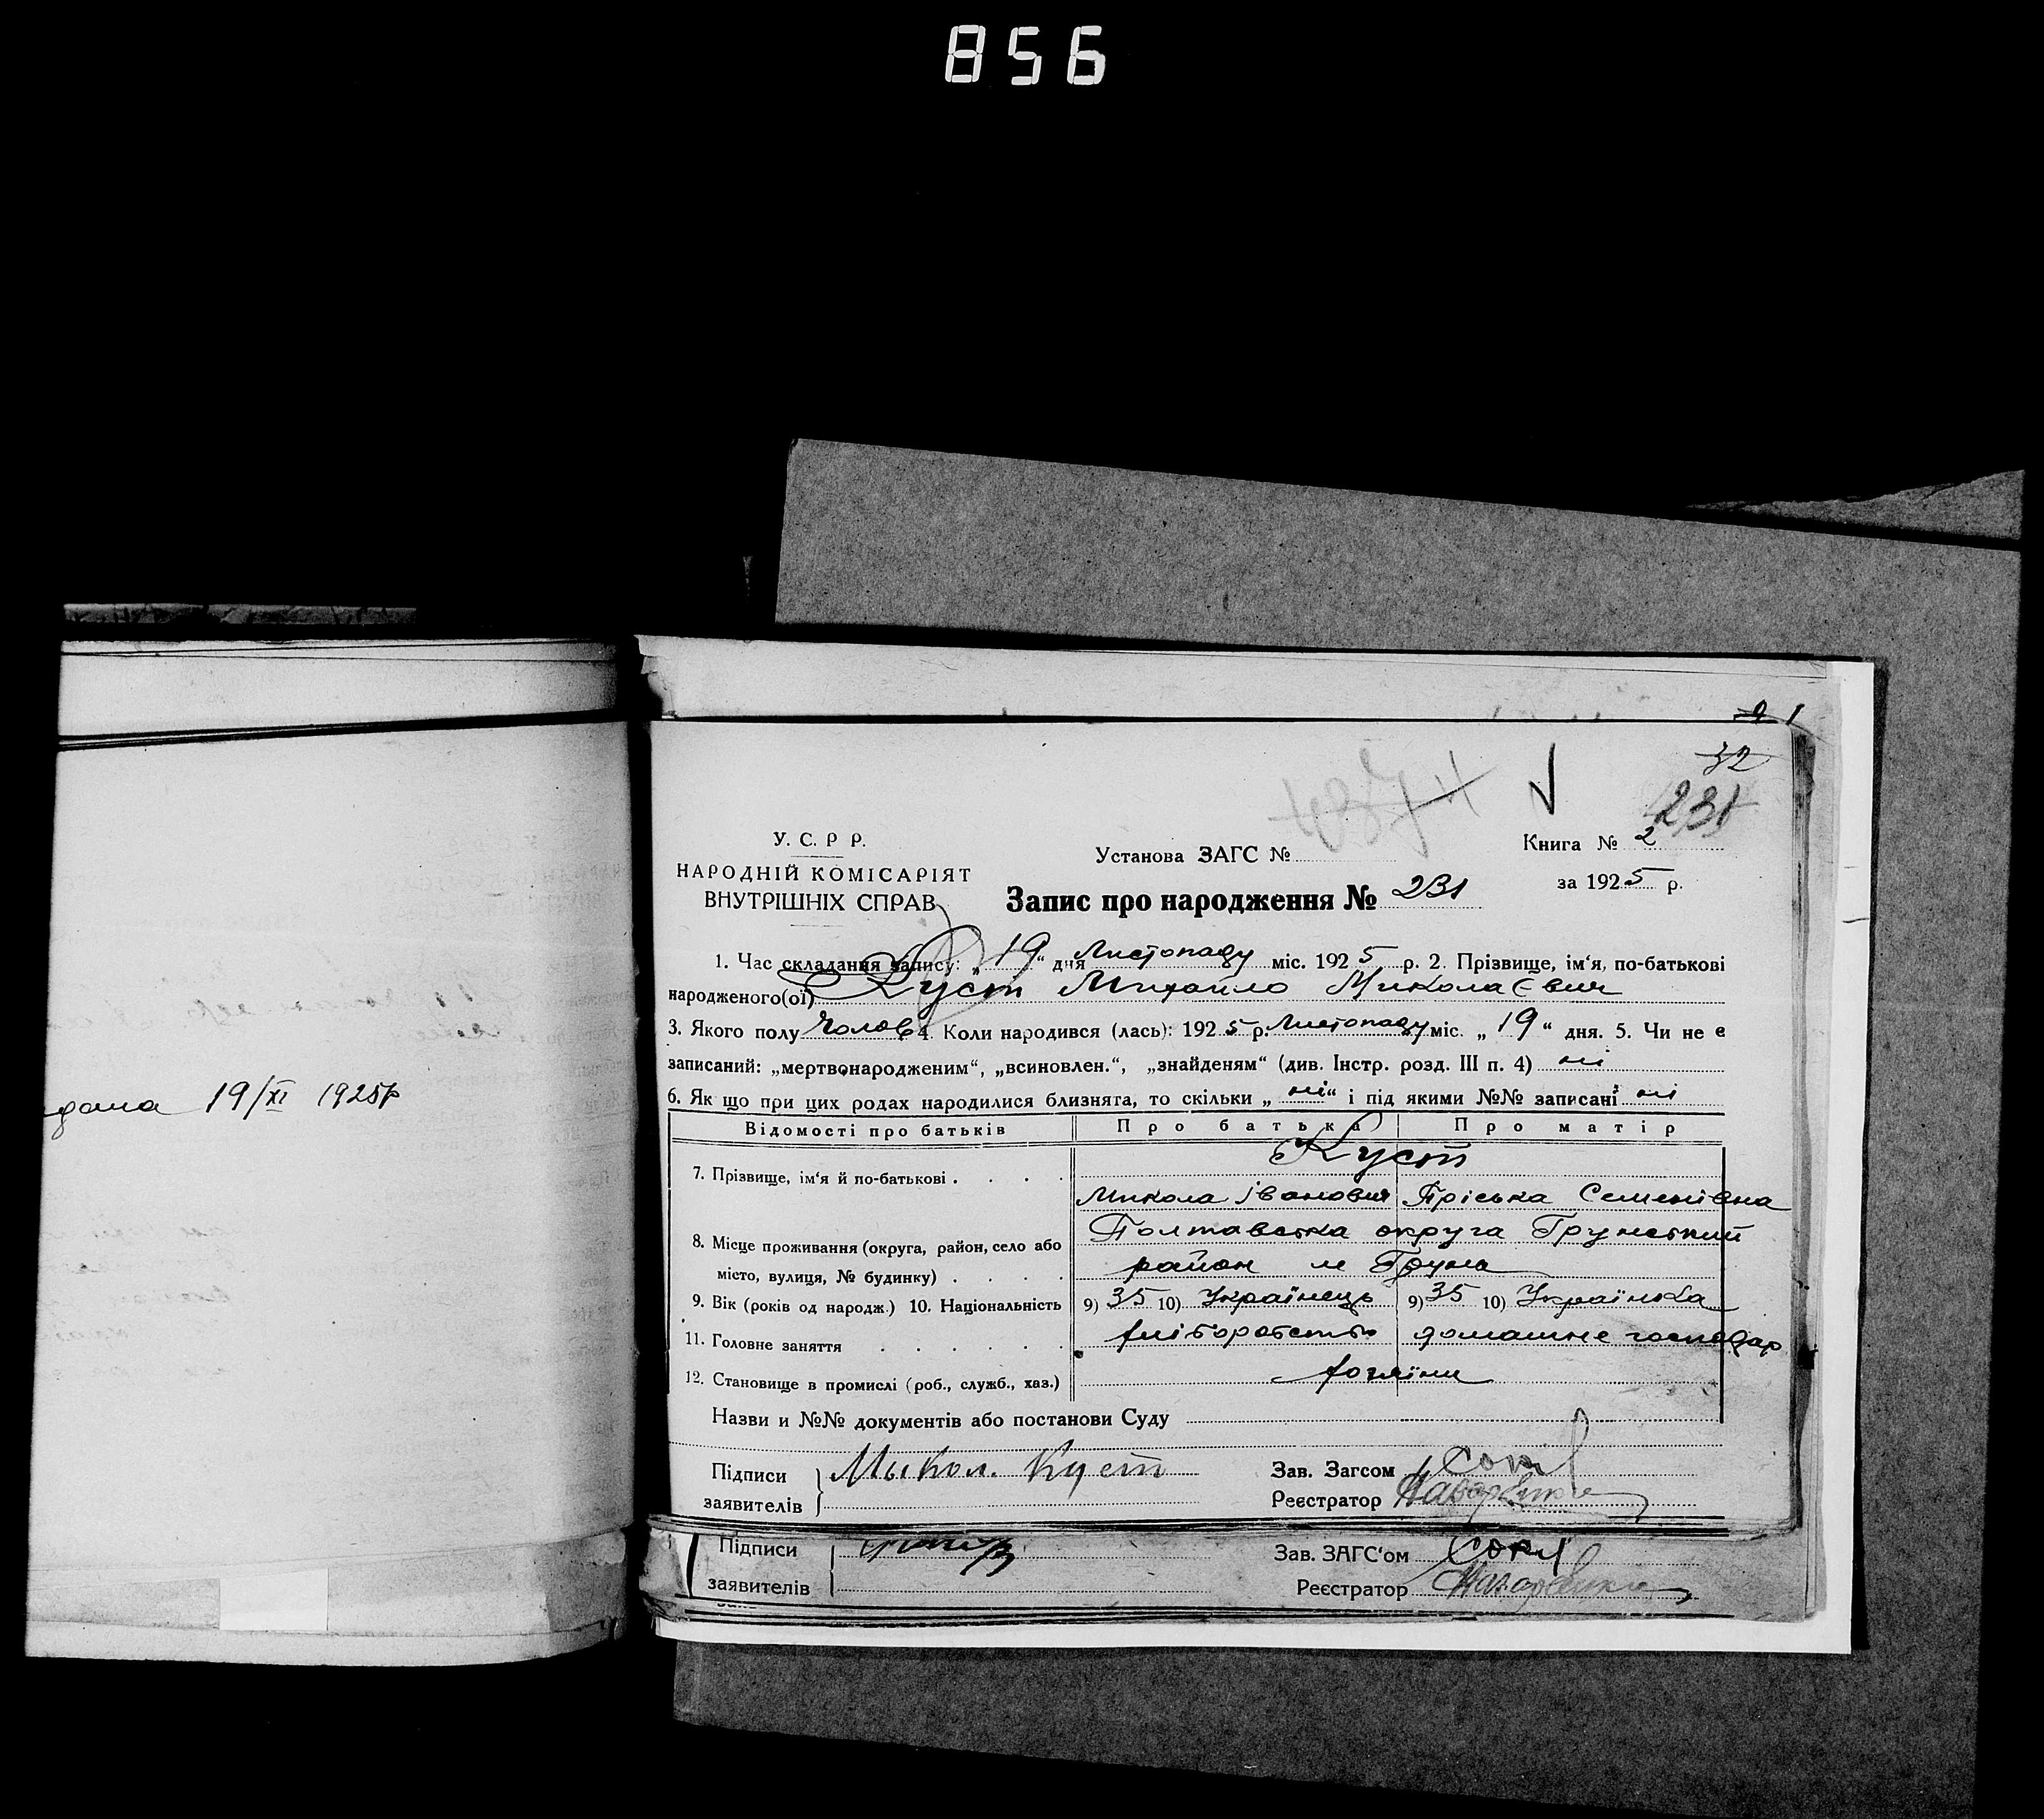 856
32
231
У. С. Р Р.
НАРОДНІЙ КОМІСАРІЯТ
ВНУТРІШНІХ СПРАВ
Установа ЗАГС №
Книга № 2
за 1925 р.
Запис про народження № 231
1. Час складання запису: „19“ дня Листопаду міс. 1925 р. 2. Прізвище, ім‘я, по-батькові
народженого(ої) Куст Михайло Миколаєвич
3. Якого полу Чолов 4. Коли народився (лась): 1925 р. Листопаду міс. „19“ дня. 5. Чи не є
записаний: „мертвонародженим“, „всиновлен.“, „знайденям“ (див. Інстр. розд. III п. 4) ні
6. Як що при цих родах народилися близнята, то скільки „ні“ і під якими №№ записані ні
Відомості про батьків Про батька Про матір
Куст
7. Прізвище, ім‘я й по-батькові .
Микола Іванович Пріська Семенівна
Полтавська округа Грунський
8. Місце проживання (округа, район, село або
місто, вулиця, № будинку) . район м Грунь
9. Вік (років од народж.) 10. Національність 9) 35 10) Українець 9) 35 10) Українька
11. Головне заняття хліборобство домашнє господар
12. Становище в промислі (роб., служб., хаз.) хозяїни
Назви и №№ документів або постанови Суду
19/XI 1925р
Підписи Мыкол. Куст
заявителів
Зав. Загсом
Реєстратор
Підписи
заявителів
Зав. ЗАГС‘ом
Реєстратор